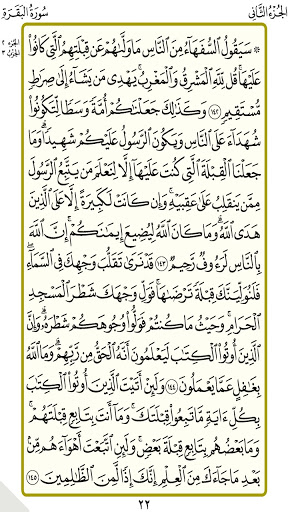 سُورَةُ البَقَرَةِ
الجُزْءُ الثَّانِي
الجزء ٢
الحزب ٣
۞ سَيَقُولُ ٱلسُّفَهَآءُ مِنَ ٱلنَّاسِ مَا وَلَّىٰهُمْ عَن قِبْلَتِهِمُ ٱلَّتِي كَانُوا۟
عَلَيْهَا ۚ قُل لِّلَّهِ ٱلْمَشْرِقُ وَٱلْمَغْرِبُ ۚ يَهْدِي مَن يَشَآءُ إِلَىٰ صِرَٰطٍ
مُّسْتَقِيمٍ ١٤٢ وَكَذَٰلِكَ جَعَلْنَٰكُمْ أُمَّةً وَسَطًا لِّتَكُونُوا۟
شُهَدَآءَ عَلَى ٱلنَّاسِ وَيَكُونَ ٱلرَّسُولُ عَلَيْكُمْ شَهِيدًا ۗ وَمَا
جَعَلْنَا ٱلْقِبْلَةَ ٱلَّتِي كُنتَ عَلَيْهَآ إِلَّا لِنَعْلَمَ مَن يَتَّبِعُ ٱلرَّسُولَ
مِمَّن يَنقَلِبُ عَلَىٰ عَقِبَيْهِ ۚ وَإِن كَانَتْ لَكَبِيرَةً إِلَّا عَلَى ٱلَّذِينَ
هَدَى ٱللَّهُ ۗ وَمَا كَانَ ٱللَّهُ لِيُضِيعَ إِيمَٰنَكُمْ ۚ إِنَّ ٱللَّهَ
بِٱلنَّاسِ لَرَءُوفٌ رَّحِيمٌ ١٤٣ قَدْ نَرَىٰ تَقَلُّبَ وَجْهِكَ فِي ٱلسَّمَآءِ ۖ
فَلَنُوَلِّيَنَّكَ قِبْلَةً تَرْضَىٰهَا ۚ فَوَلِّ وَجْهَكَ شَطْرَ ٱلْمَسْجِدِ
ٱلْحَرَامِ ۚ وَحَيْثُ مَا كُنتُمْ فَوَلُّوا۟ وُجُوهَكُمْ شَطْرَهُۥ ۗ وَإِنَّ
ٱلَّذِينَ أُوتُوا۟ ٱلْكِتَٰبَ لَيَعْلَمُونَ أَنَّهُ ٱلْحَقُّ مِن رَّبِّهِمْ ۗ وَمَا ٱللَّهُ
بِغَٰفِلٍ عَمَّا يَعْمَلُونَ ١٤٤ وَلَئِنْ أَتَيْتَ ٱلَّذِينَ أُوتُوا۟ ٱلْكِتَٰبَ
بِكُلِّ ءَايَةٍ مَّا تَبِعُوا۟ قِبْلَتَكَ ۚ وَمَآ أَنتَ بِتَابِعٍ قِبْلَتَهُمْ ۚ
وَمَا بَعْضُهُم بِتَابِعٍ قِبْلَةَ بَعْضٍ ۚ وَلَئِنِ ٱتَّبَعْتَ أَهْوَآءَهُم مِّن
بَعْدِ مَا جَآءَكَ مِنَ ٱلْعِلْمِ ۙ إِنَّكَ إِذًا لَّمِنَ ٱلظَّٰلِمِينَ ١٤٥
٢٢